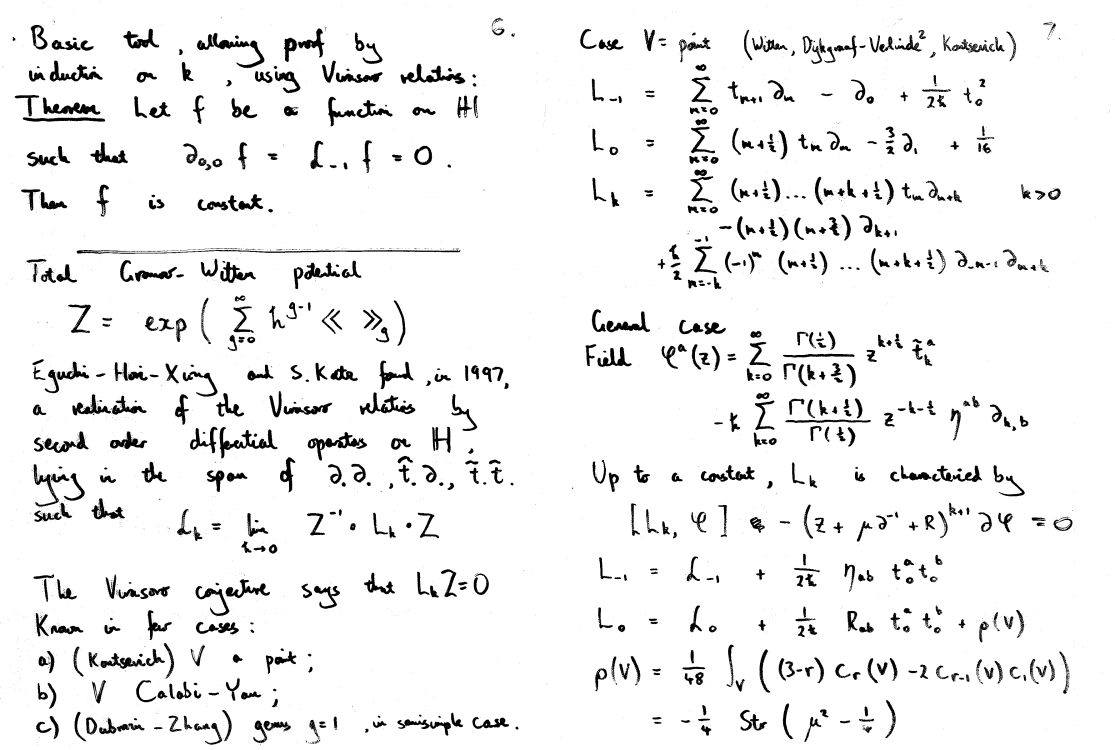 6.
Basic tool, allowing proof by
induction on k, using Virasoro relations:
Theorem Let f be a function on ℍ
such that ∂₀,₀ f = ℒ₋₁ f = 0.
Then f is constant.
Total Gromov-Witten potential
Z = exp ( ∑_{g=0}^{∞} ħ^{g-1} ≪ ≫_g )
Eguchi-Hori-Xiong and S. Katz found, in 1997,
a realization of the Virasoro relations by
second order differential operators on ℍ,
lying in the span of ∂.∂., t̃.∂., t̃.t̃.
such that
ℒ_k = lim_{ħ→0} Z^{-1} • L_k • Z
The Virasoro conjecture says that L_k Z=0
Known in few cases:
a) (Kontsevich) V a point;
b) V Calabi-Yau;
c) (Dubrovin-Zhang) genus g=1, in semisimple case.
7.
Case V = point (Witten, Dijkgraaf-Verlinde², Kontsevich)
L_{-1} = ∑_{n=0}^{∞} t_{n+1} ∂_n - ∂_0 + 1/2ħ t_0^2
L_0 = ∑_{n=0}^{∞} (n+½) t_n ∂_n - 3/2 ∂_1 + 1/16
L_k = ∑_{n=0}^{∞} (n+½)...(n+k+½) t_n ∂_{n+k} k>0
-(n+½)(n+3/2) ∂_{k+1}
+ ħ/2 ∑_{n=-k}^{-1} (-1)^n (n+½) ... (n+k+½) ∂_{-n-1} ∂_{n+k}
General case
Field φ^a(z) = ∑_{k=0}^{∞} Γ(½)/Γ(k+3/2) z^{k+½} t̃_k^a
-ħ ∑_{k=0}^{∞} Γ(k+½)/Γ(½) z^{-k-½} η^{ab} ∂_{k,b}
Up to a constant, L_k is characterized by
[L_k, φ] - (z + μ∂^{-1} + R)^{k+1} ∂φ = 0
L_{-1} = ℒ_{-1} + 1/2ħ η_{ab} t_0^a t_0^b
L_0 = ℒ_0 + 1/2ħ R_{ab} t_0^a t_0^b + ρ(V)
ρ(V) = 1/48 ∫_V ( (3-r) c_r(V) - 2 c_{r-1}(V) c_1(V) )
= -¼ Str ( μ² - ¼ )